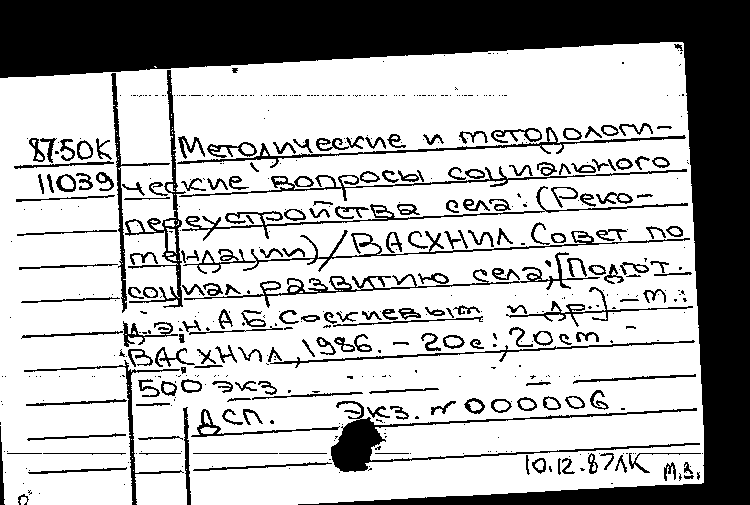 87-50К Методические и методологи-
11039 ческие вопросы социального
переустройства села: (Реко-
мендации)/ВАСХНИЛ. Совет по
социал. развитию села; [Подгот.
д.э.н. А.Б. Соскиевым и др.] - М.:
ВАСХНИЛ, 1986. - 20с.; 20см. -
500 экз.
ДСП. Экз. № 000006.
10.12.87ЛК М.З.